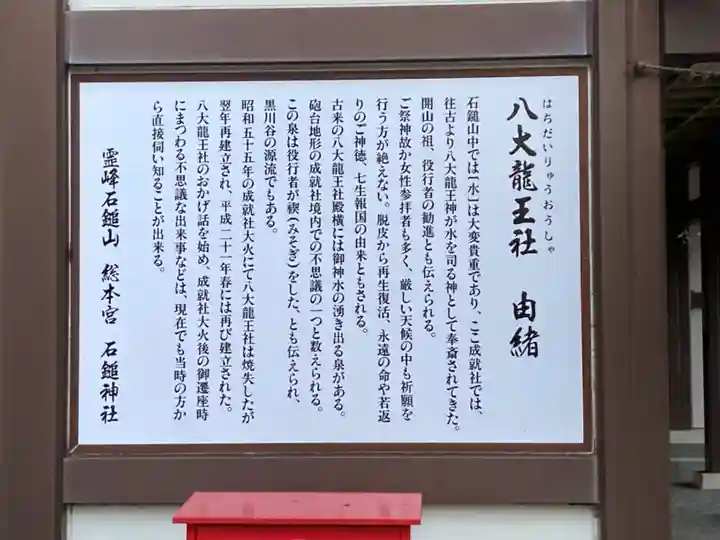 はちだいりゅうおうしゃ
八大龍王社 由緒
石鎚山中では[水]は大変貴重であり、ここ成就社では、
往古より八大龍王神が水を司る神として奉斎されてきた。
開山の祖、役行者の勧進とも伝えられる。
ご祭神故か女性参拝者も多く、厳しい天候の中も祈願を
行う方が絶えない。脱皮から再生復活、永遠の命や若返
りのご神徳、七生報国の由来ともされる。
古来の八大龍王社殿横には御神水の湧き出る泉がある。
砲台地形の成就社境内での不思議の一つと数えられる。
この泉は役行者が禊(みそぎ)をした、とも伝えられ、
黒川谷の源流でもある。
昭和五十五年の成就社大火にて八大龍王社は焼失したが
翌年再建立され、平成二十一年春には再び建立された。
八大龍王社のおかげ話を始め、成就社大火後の御遷座時
にまつわる不思議な出来事などは、現在でも当時の方か
ら直接伺い知ることが出来る。
霊峰石鎚山 総本宮 石鎚神社